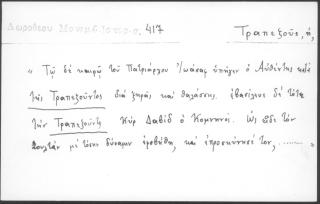 Δωροθέου Μονεμβασίας. 417
Τραπεζοῦς, ἡ,
« Τῷ δὲ καιρῷ τοῦ Πατριάρχου Ἰωάσαφ ὑπῆγεν ὁ Αὐθέντης κατὰ
τῆς Τραπεζοῦντος διὰ ξηρᾶς καὶ θαλάσσης. ἐβασίλευε δὲ τότε
τὴν Τραπεζοῦντα Κὺρ Δαβὶδ ὁ Κομνηνός. Ὡς εἶδε τὸν
Σουλτὰν μὲ τόσην δύναμιν ἐφοβήθη, καὶ ἐπροσκύνησέ τον, ........ »